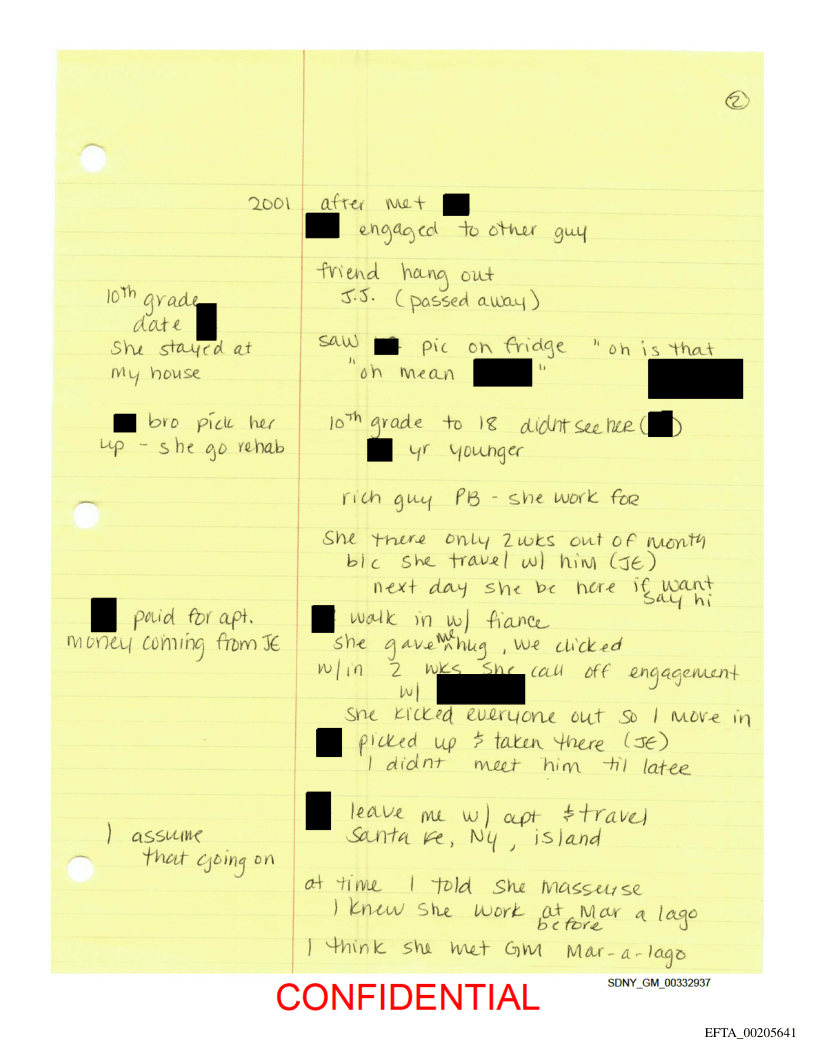 2
2001 after met
engaged to other guy
friend hang out
J.J. (passed away)
10th grade
date
She stayed at
my house
saw pic on fridge "oh is that
"oh mean "
bro pick her
up - she go rehab
10th grade to 18 didnt see her ( )
yr younger
rich guy PB - she work for
She there only 2 wks out of month
b/c she travel w/ him (JE)
next day she be here if want
say hi
paid for apt.
money coming from JE
walk in w/ fiance
she gave me hug, we clicked
w/in 2 wks she call off engagement
w/
She kicked everyone out so I move in
picked up & taken there (JE)
I didnt meet him til later
leave me w/ apt & travel
Santa Fe, NY, island
I assume
that going on
at time I told she masseuse
I knew she work at Mar a lago
before
I think she met GM Mar-a-lago
SDNY_GM_00332937
CONFIDENTIAL
EFTA_00205641